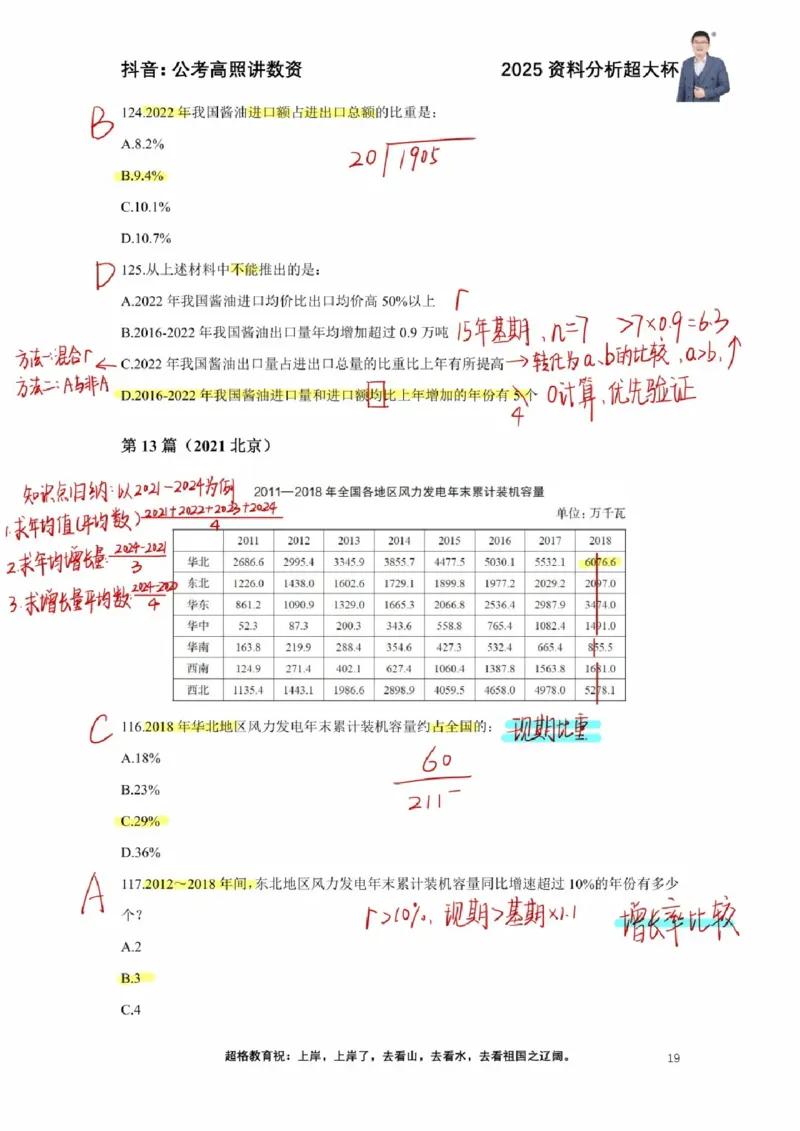 抖音：公考高照讲数资 2025 资料分析超大杯
124.2022 年我国酱油进口额占进出口总额的比重是：
B
A.8.2%
20 1905
B.9.4%
C.10.1%
D.10.7%
D
125.从上述材料中不能推出的是：
A.2022 年我国酱油进口均价比出口均价高 50%以上 r
B.2016-2022 年我国酱油出口量年均增加超过 0.9 万吨 15年基期、n=7 >7×0.9=6.3
方法一:混合r
C.2022 年我国酱油出口量占进出口总量的比重比上年有所提高 → 转化为a、b的比较,a>b,↑
方法二:A与非A
D.2016-2022 年我国酱油进口量和进口额均比上年增加的年份有 5 个 0计算,优先验证
4
第 13 篇（2021 北京）
知识点归纳:以2021-2024为例
2011—2018 年全国各地区风力发电年末累计装机容量
单位：万千瓦
1.求年均值(平均数) 2021+2022+2023+2024
4
2.求年均增长量: 2024-2021
3
3.求增长量平均数: 2024-2020
4
2011 2012 2013 2014 2015 2016 2017 2018
华北 2686.6 2995.4 3345.9 3855.7 4477.5 5030.1 5532.1 6076.6
东北 1226.0 1438.0 1602.6 1729.1 1899.8 1977.2 2029.2 2097.0
华东 861.2 1090.9 1329.0 1665.3 2066.8 2536.4 2987.9 3474.0
华中 52.3 87.3 200.3 343.6 558.8 765.4 1082.4 1491.0
华南 163.8 219.9 288.4 354.6 427.3 532.4 665.4 855.5
西南 124.9 271.4 402.1 627.4 1060.4 1387.8 1563.8 1681.0
西北 1135.4 1443.1 1986.6 2898.9 4059.5 4658.0 4978.0 5278.1
C
116.2018 年华北地区风力发电年末累计装机容量约占全国的： 现期比重
A.18%
60
B.23%
211-
C.29%
D.36%
A
117.2012～2018 年间，东北地区风力发电年末累计装机容量同比增速超过 10%的年份有多少
个？
r>10%, 现期>基期×1.1 增长率比较
A.2
B.3
C.4
超格教育祝：上岸，上岸了，去看山，去看水，去看祖国之辽阔。
19